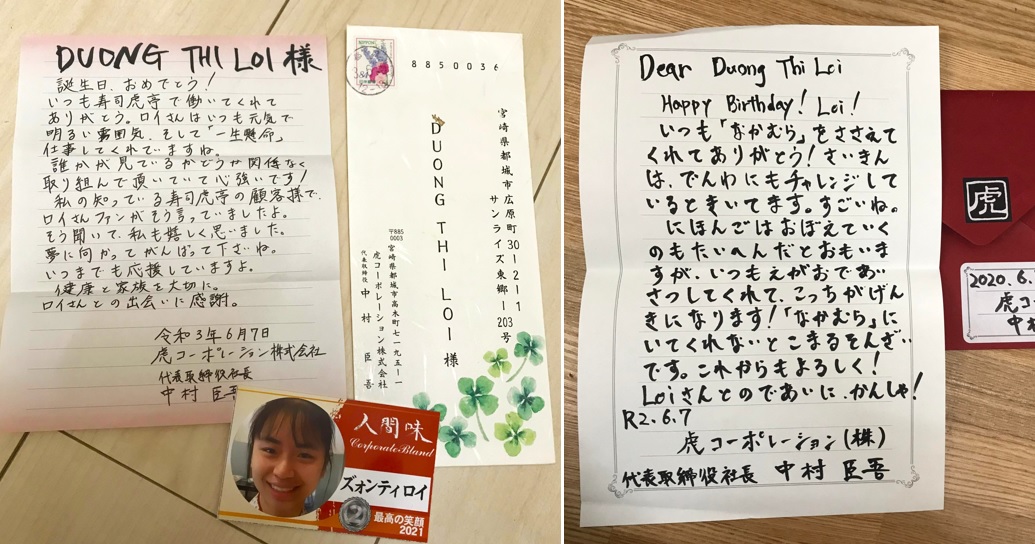 DUONG THI LOI 様
誕生日、おめでとう!
いつも寿司虎亭で働いてくれて
ありがとう。ロイさんはいつも元気で
明るい雰囲気、そして「一生懸命」
仕事してくれていますね。
誰かが見ているかどうか関係なく
取り組んで頂いていて心強いです!
私の知っている寿司虎亭の顧客様で、
ロイさんファンがそう言っていましたよ。
そう聞いて、私も嬉しく思いました。
夢に向かってがんばって下さいね。
いつまでも応援していますよ。
健康と家族を大切に。
ロイさんとの出会いに感謝。
令和3年6月7日
虎コーポレーション株式会社
代表取締役社長
中村 臣吾
8850036
宮崎県都城市広原町30-21-1
サンライズ東郷-203号
DUONG THI LOI 様
〒885
0003
宮崎県都城市高木町七一九五-一
虎コーポレーション株式会社
代表取締役 中村 臣吾
人間味
CorporateBland
ズォンティロイ
2
最高の笑顔
2021
Dear Duong Thi Loi
Happy Birthday! Loi!
いつも「なかむら」をささえて
くれてありがとう!さいきん
は、でんわにもチャレンジして
いるときいてます。すごいね。
にほんごはおぼえていく
のもたいへんだとおもいま
すが、いつもえがおであい
さつしてくれて、こっちがげん
きになります!「なかむら」に
いてくれないとこまるそんざい
です。これからもよろしく!
Loiさんとのであいに、かんしゃ!
R2.6.7
虎コーポレーション(株)
代表取締役社長 中村 臣吾
虎
2020.6.
虎コ
中